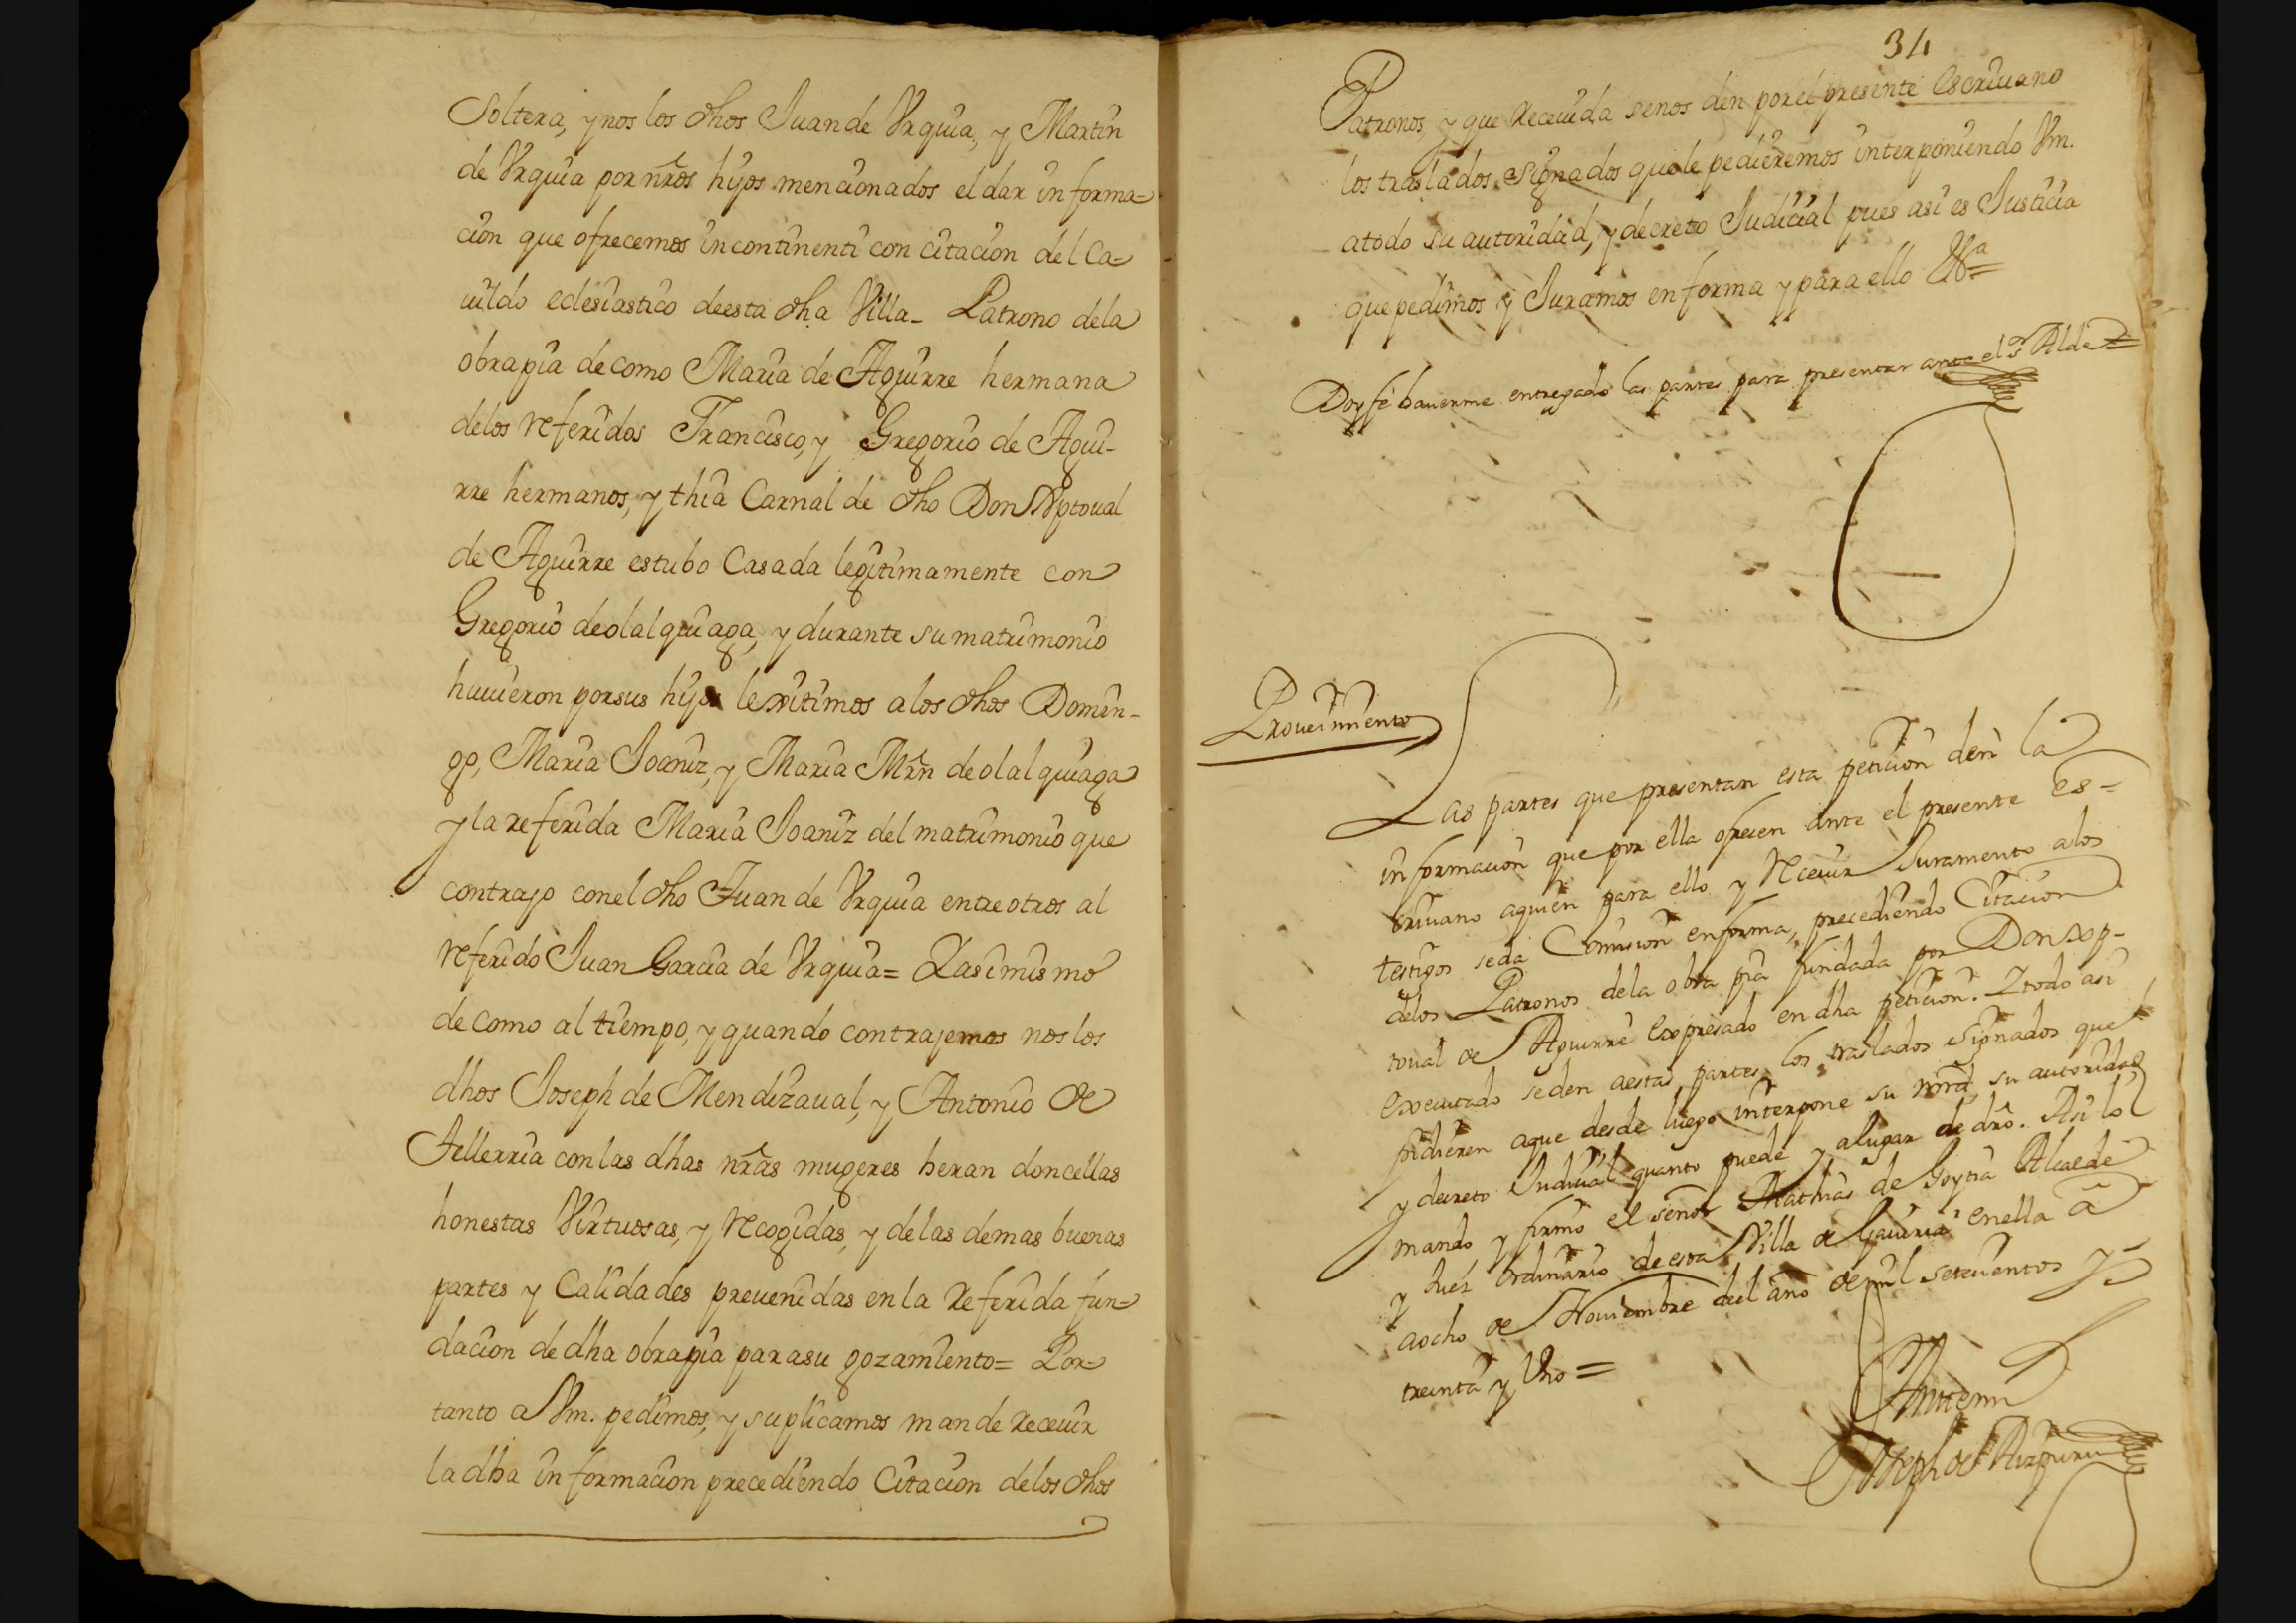 Soltera, y nos los dhos Juan de Vrquia, y Martin
de Vrquia por nr̃os hijos mencionados el dar informa=
cion que ofrecemos incontinenti con citacion del Ca=
uildo eclesiastico deesta dha Villa_ Patrono dela
obrapia de como Maria de Aguirre hermana
delos referidos Francisco, y Gregorio de Agui-
rre hermanos, y thia Carnal de dho Don Xptoual
de Aguirre estubo Casada legitimamente con
Gregorio deolalquiaga, y durante su matrimonio
huuieron porsus hijos lexitimos alos dhos Domin-
go, Maria Joaniz, y Maria Mrñ deolalquiaga
y la referida Maria Joaniz del matrimonio que
contrajo conel dho Juan de Vrquia entre otros al
referido Juan Garcia de Vrquia= Y asimismo
de como al tiempo, y quando contrajemos nos los
dhos Joseph de Mendizaual, y Antonio de
Tellerria con las dhas nr̃as mugeres heran doncellas
honestas Virtuosas, y recogidas, y delas demas buenas
partes y Calidades preuenidas en la referida fun=
dacion de dha obrapia parasu gozamiento= Por=
tanto a Vm. pedimos, y suplicamos mande receuir
la dha informacion precediendo Citacion delos dhos
34
Patronos, y que receuida senos den por el presente Escriuano
los traslados signados que le pedieremos interponiendo Vm.
atodo su autoridad, y decreto Judicial pues asi es Justicia
que pedimos y Juramos en forma y para ello &a
Doyfe hauerme entregado las partes para presentar ante el sr Alde
Proueimiento
Las partes que presentan esta peticion den la
informacion que por ella ofrecen ante el presente es-
criuano aquien para ello y receuir Juramento alos
testigos seda Comision enforma, precediendo Citacion
delos Patronos dela obra pia fundada por Don Xp-
toual de Aguirre expresado en dha peticion. Y todo asi
executado seden aestas partes los traslados signados que
pidieren aque desde luego interpone su mrd, su autoridad
y decreto Judicial quanto puede y alugar de dro. Asi lo
mando y firmo el señor Mathias de Goytia Alcalde
y Juez ordinario deesta Villa de Gauiria enella a
aocho de Nouiembre del año de mil setecientos y
treinta y Vno =
Antemi
Joseph de Aizpuru